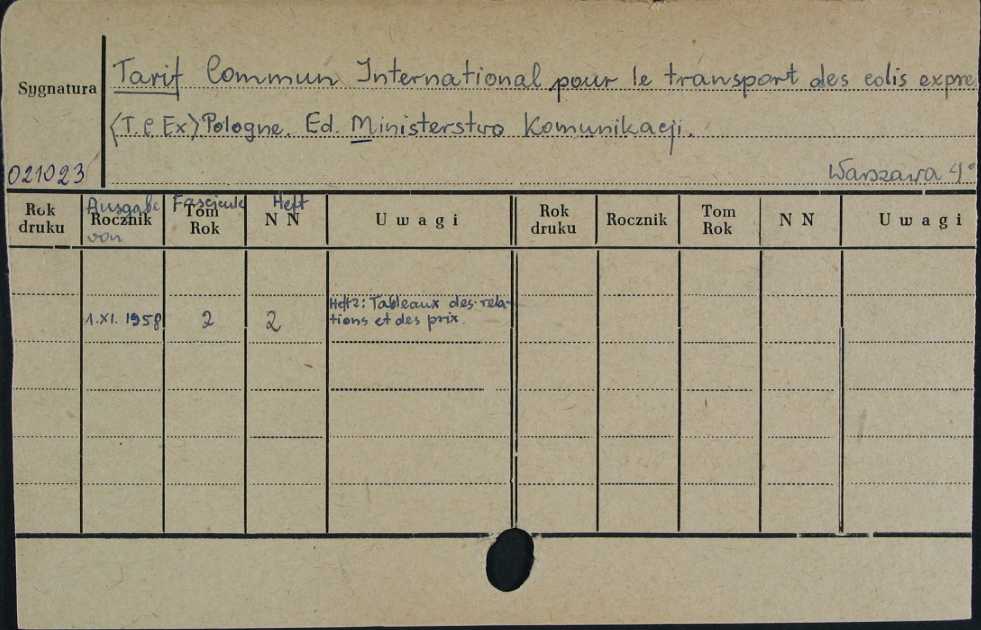 Sygnatura
Tarif Commun International pour le transport des colis expre
(T.C Ex) Pologne. Ed. Ministerstwo Komunikacji.
021023
Warszawa 4°
Rok druku Ausgabe von Rocznik Fascicule Tom Rok Heft NN Uwagi Rok druku Rocznik Tom Rok NN Uwagi
Heft 2: Tableaux des rela-
1.XI. 1958 2 2 tions et des prix.